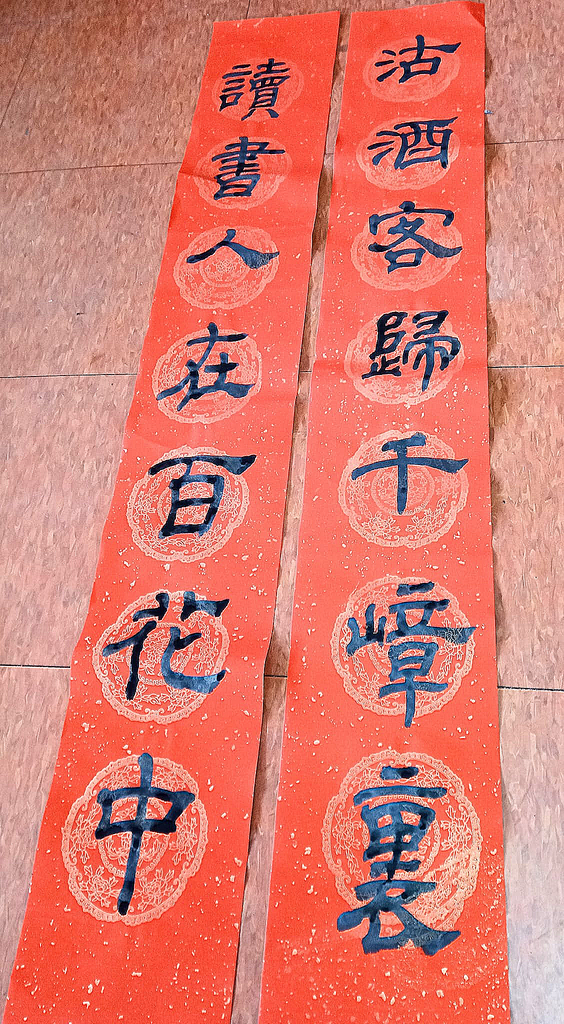 沽酒客歸千嶂裏
讀書人在百花中